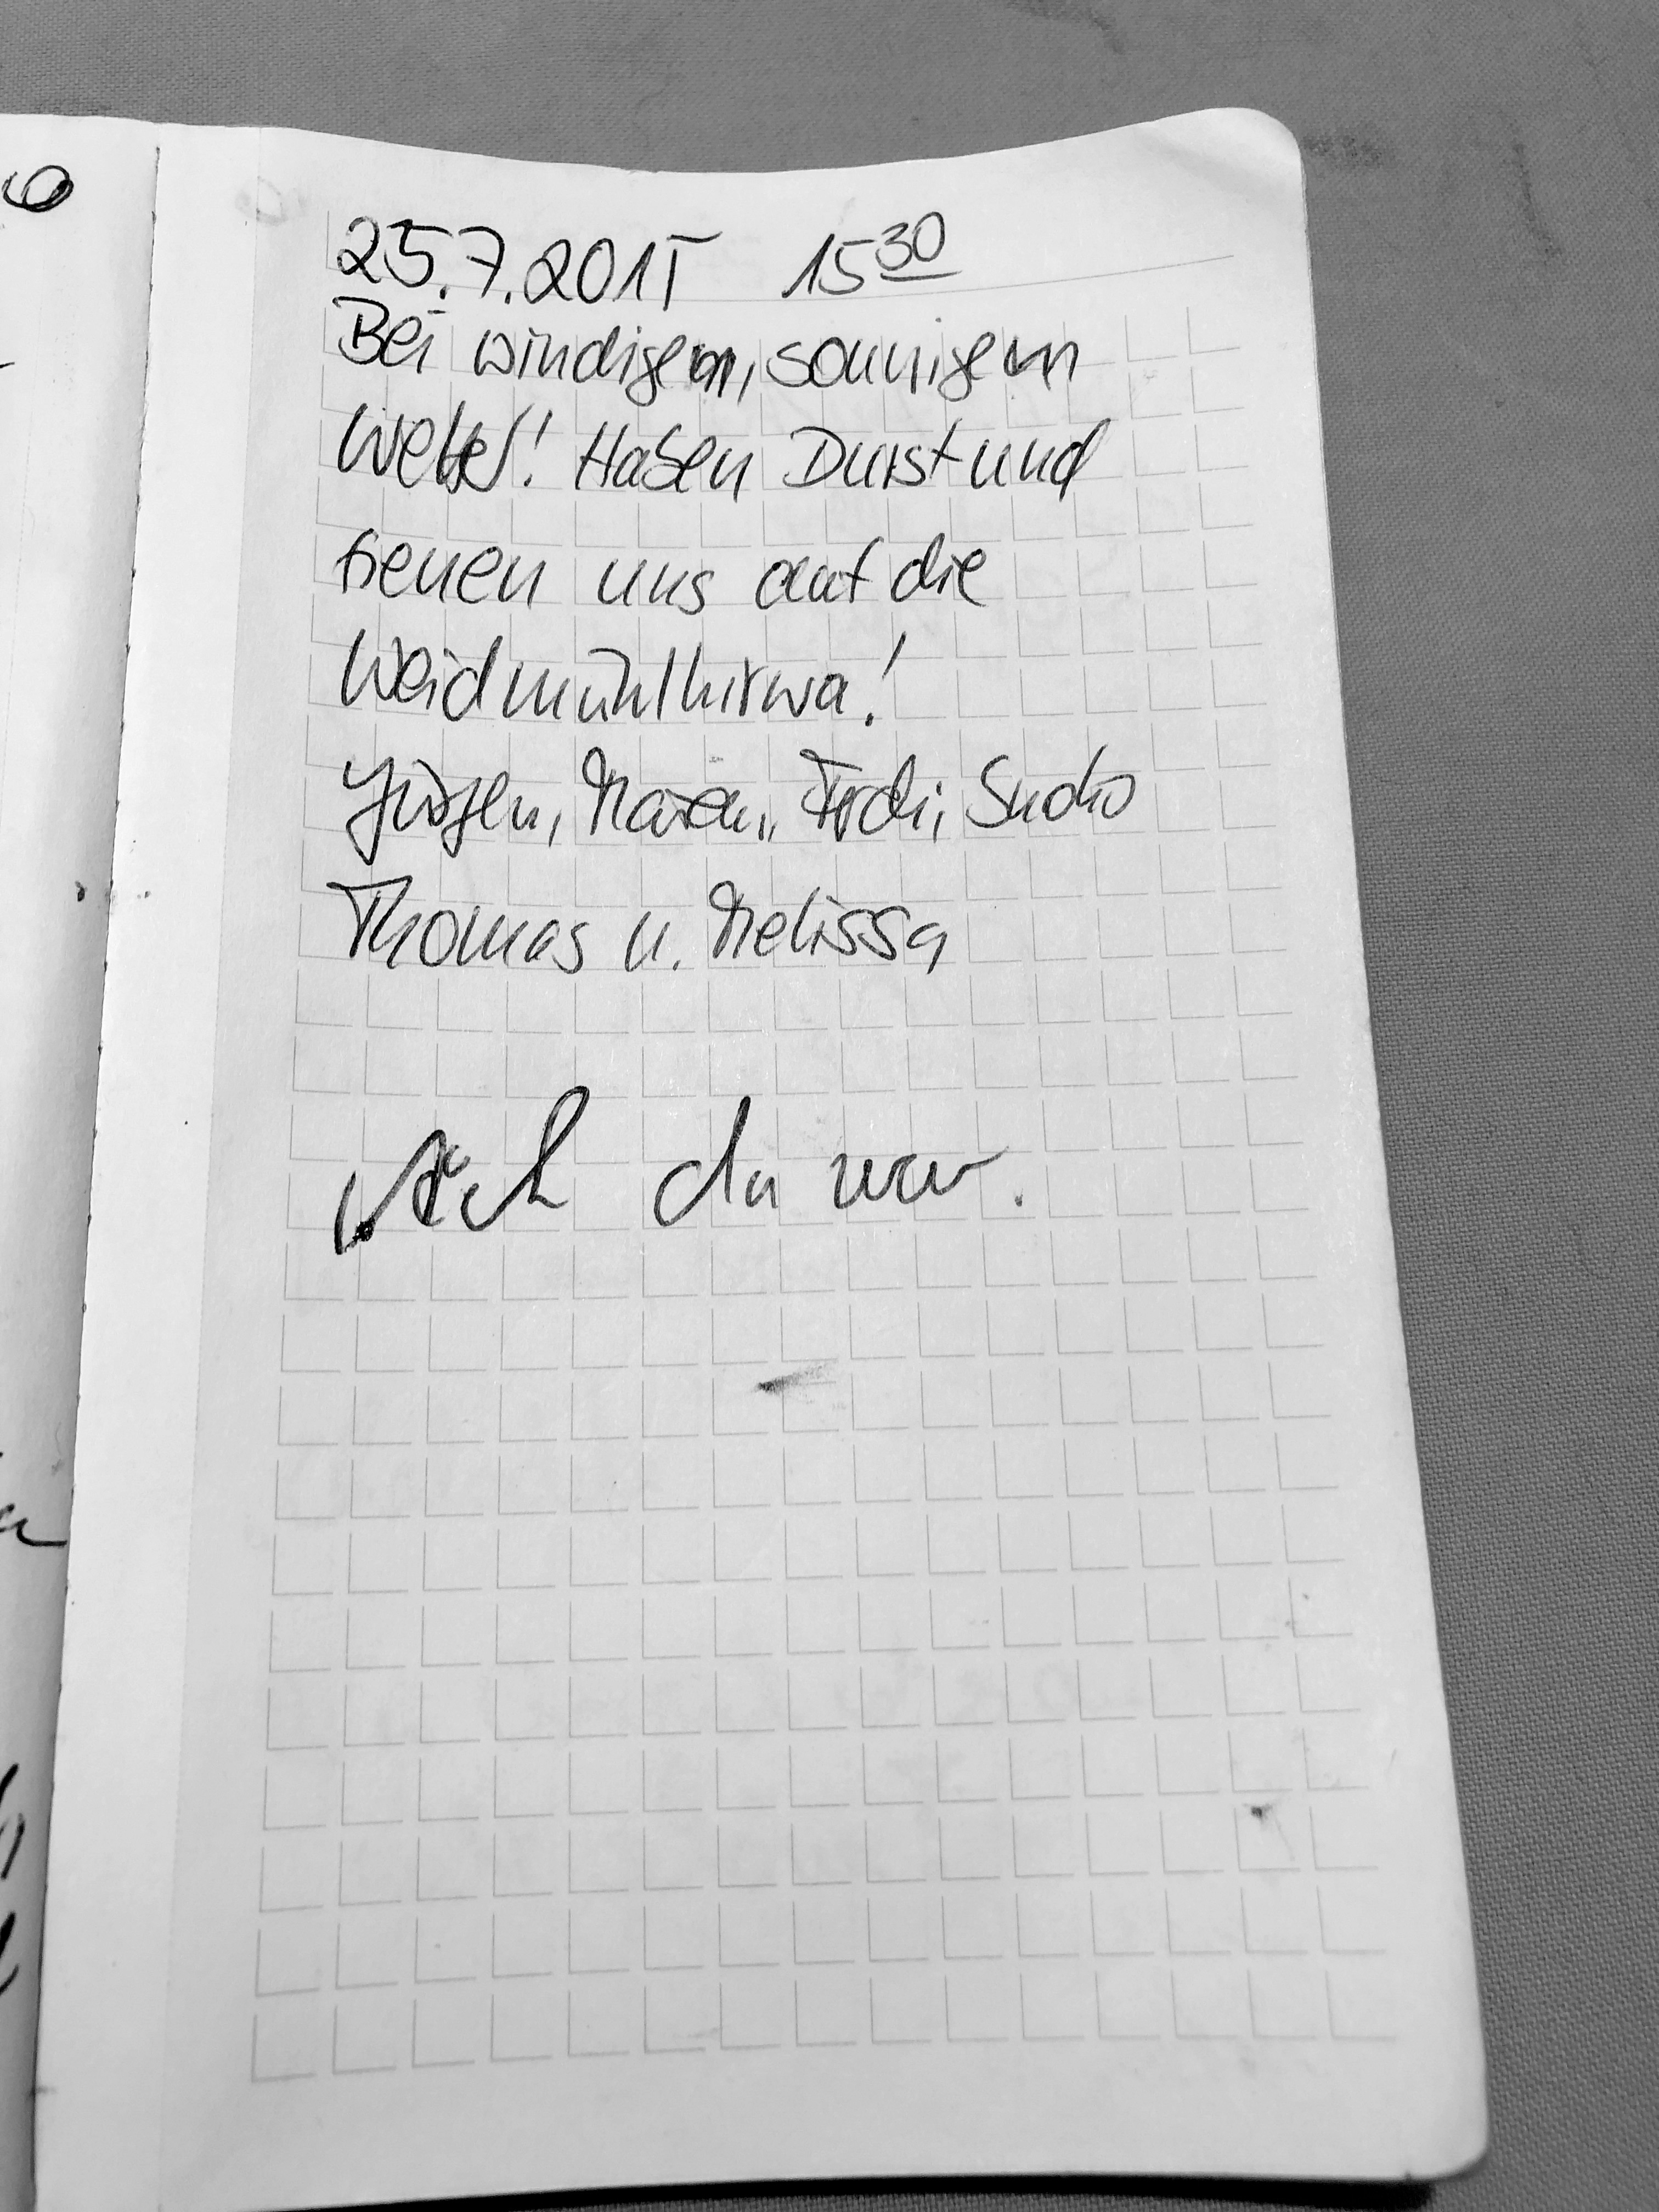 25.7.2015 15³⁰
Bei windigem, sonnigem
Wetter! Haben Durst und
freuen uns auf die
Weidmühlkirwa!
Jürgen, Maren, Ferdi,
Thomas u. Melissa